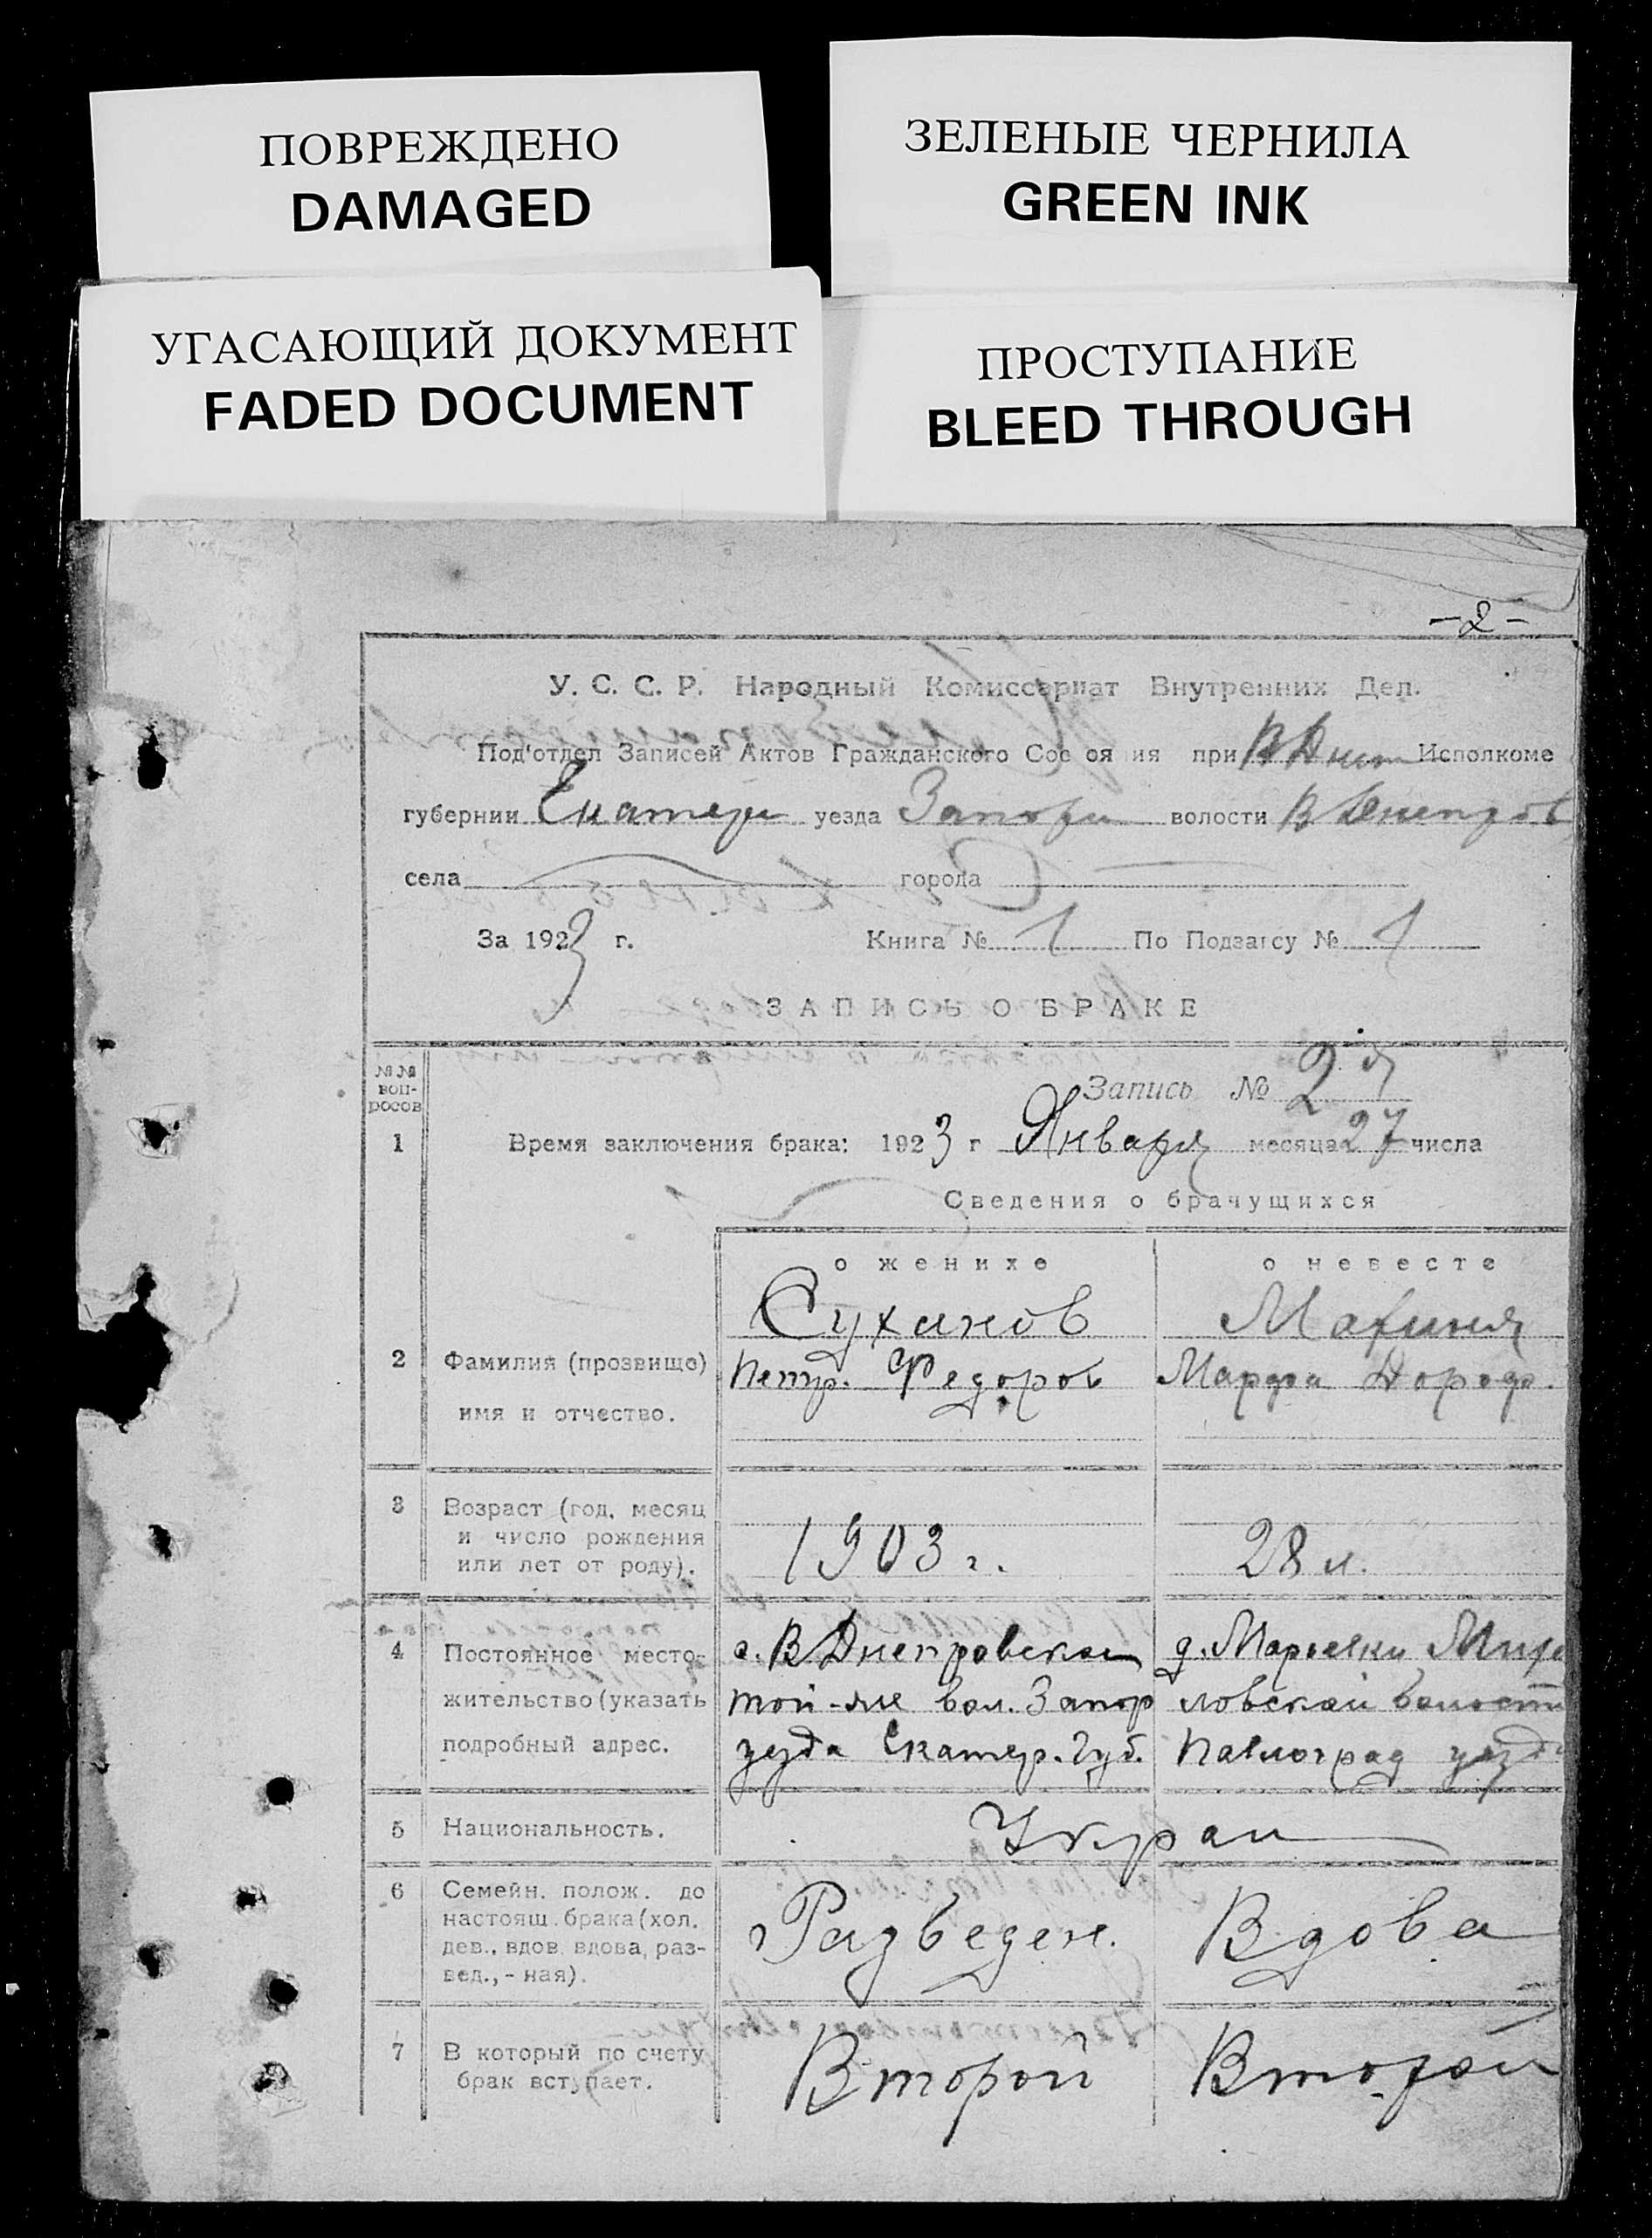 ПОВРЕЖДЕНО
DAMAGED
ЗЕЛЕНЫЕ ЧЕРНИЛА
GREEN INK
УГАСАЮЩИЙ ДОКУМЕНТ
FADED DOCUMENT
ПРОСТУПАНИЕ
BLEED THROUGH
-2-
У. С. С. Р. Народный Комиссариат Внутренних Дел.
Под'отдел Записей Актов Гражданского Сос оя ия при Исполкоме
губернии Екатери уезда Запори волости В Днепров
села города
За 1923 г. Книга № 1 По Подзагсу № 1
ЗАПИСЬ О БРАКЕ
№№ воп-росов
Запись № 2
1 Время заключения брака: 1923 г Января месяца 27 числа
Сведения о брачущихся
о женихе о невесте
Суханов
2 Фамилия (прозвище) Петр. Федоров Марфа Дороф.
имя и отчество.
3 Возраст (год, месяц
и число рождения
или лет от роду). 1903 г. 28 л.
4 Постоянное место- с. В Днепровское д. Марьевки
жительство (указать той-же вол. Запор ловской волости
подробный адрес. уезда Екатер. Губ. Павлоград уезда
5 Национальность. Украи
6 Семейн. полож. до
настоящ. брака (хол. Разведен. Вдова
дев., вдов. вдова, раз-
вед., - ная).
7 В который по счету Второй Второй
брак вступает.